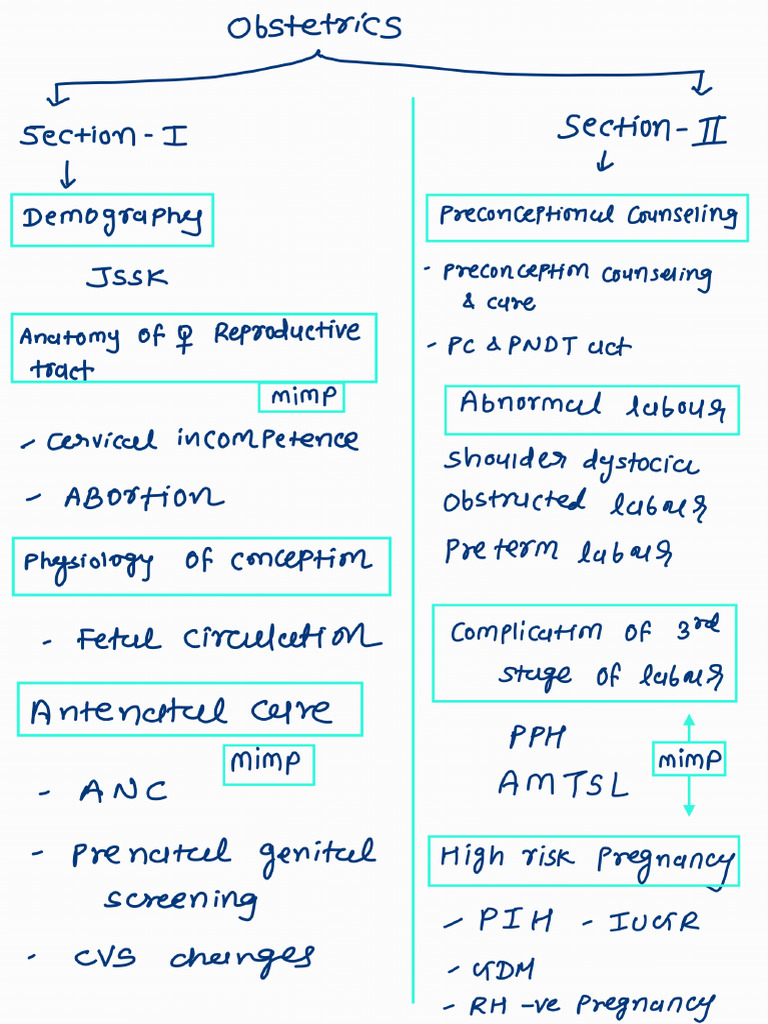 Obstetrics
Section - I
Demography
JSSK
Anatomy of ♀ Reproductive
tract
mimp
- Cervical incompetence
- ABortion
Physiology of conception
- Fetal circulation
Antenatal care
mimp
- ANC
- Prenatal genital
screening
- CVS changes
Section - II
Preconceptional Counseling
- Preconception counseling
& care
- PC & PNDT act
Abnormal labour
Shoulder dystocia
Obstructed labour
Preterm labour
Complication of 3rd
stage of labour
PPH
AMTSL
mimp
High risk Pregnancy
- PIH - IUGR
- GDM
- RH -ve Pregnancy